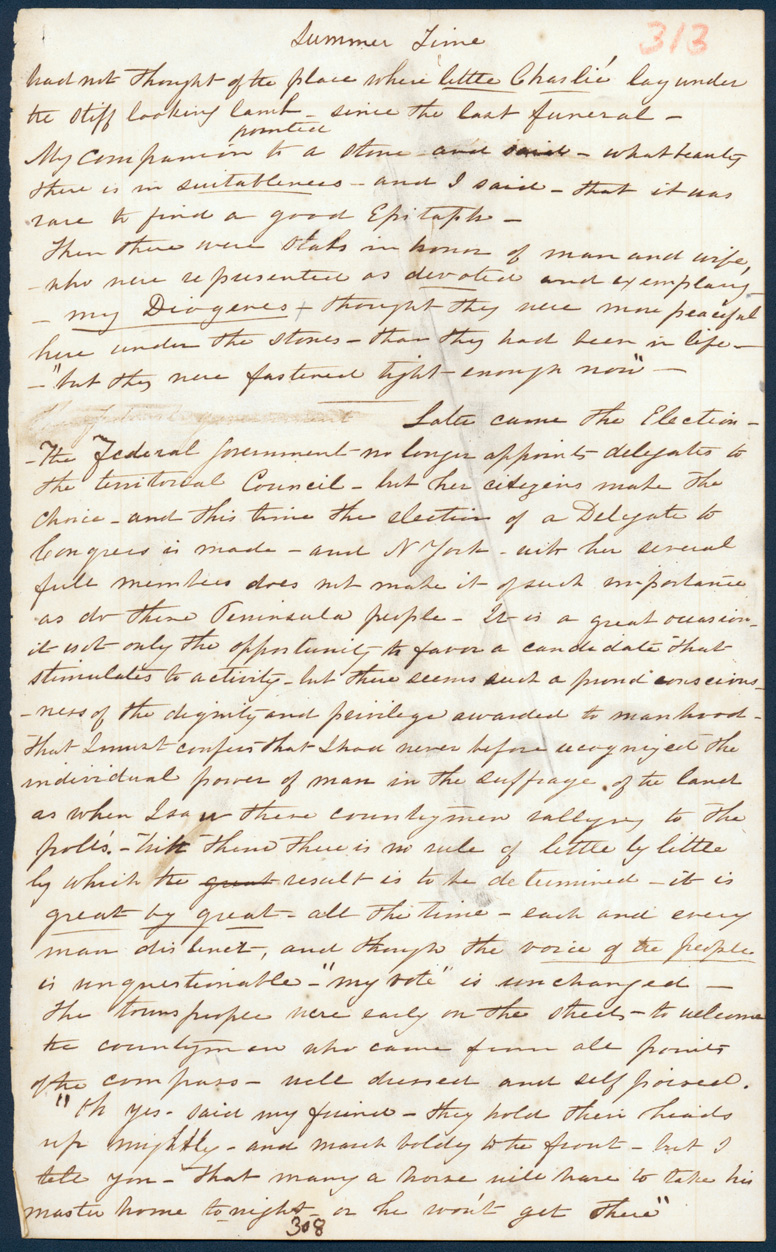 Summer Time
313
had not thought of the place where little Charlie lay under
the stiff looking lamb - since the last funeral -
pointed
My companion to a stone and said - what beauty
there is in suitableness - and I said - that it was
rare to find a good Epitaph -
Then there were slabs in honor of man and wife,
- who were represented as devoted and exemplary
- my Diogenes thought they were more peaceful
here under the stones - than they had been in life -
- "but they were fastened tight enough now" -
Later came the Election -
- The Federal Government no longer appoints delegates to
the territorial Council - but her citizens make the
choice - and this time the election of a Delegate to
Congress is made - and N York - with her several
full members does not make it of such importance
as do these Peninsula people - It is a great occasion -
it is not only the opportunity to favor a candidate that
stimulates to activity - but there seems such a proud conscious-
-ness of the dignity and privilege awarded to manhood -
that I must confess that I had never before recognized the
individual power of man in the suffrage of the land
as when I saw these countrymen rallying to the
polls. - With these there is no rule of little by little
by which the great result is to be determined - it is
great by great - all the time - each and every
man distinct, and though the voice of the people
is unquestionable - "my vote" is unchanged -
The townspeople were early on the streets - to welcome
the countrymen who came from all points
of the compass - well dressed and self poised.
"Oh yes - said my friend - they hold their heads
up mightly - and march boldly to the front - but I
tell you - that many a horse will have to take his
master home to-night - or he won't get there"
308